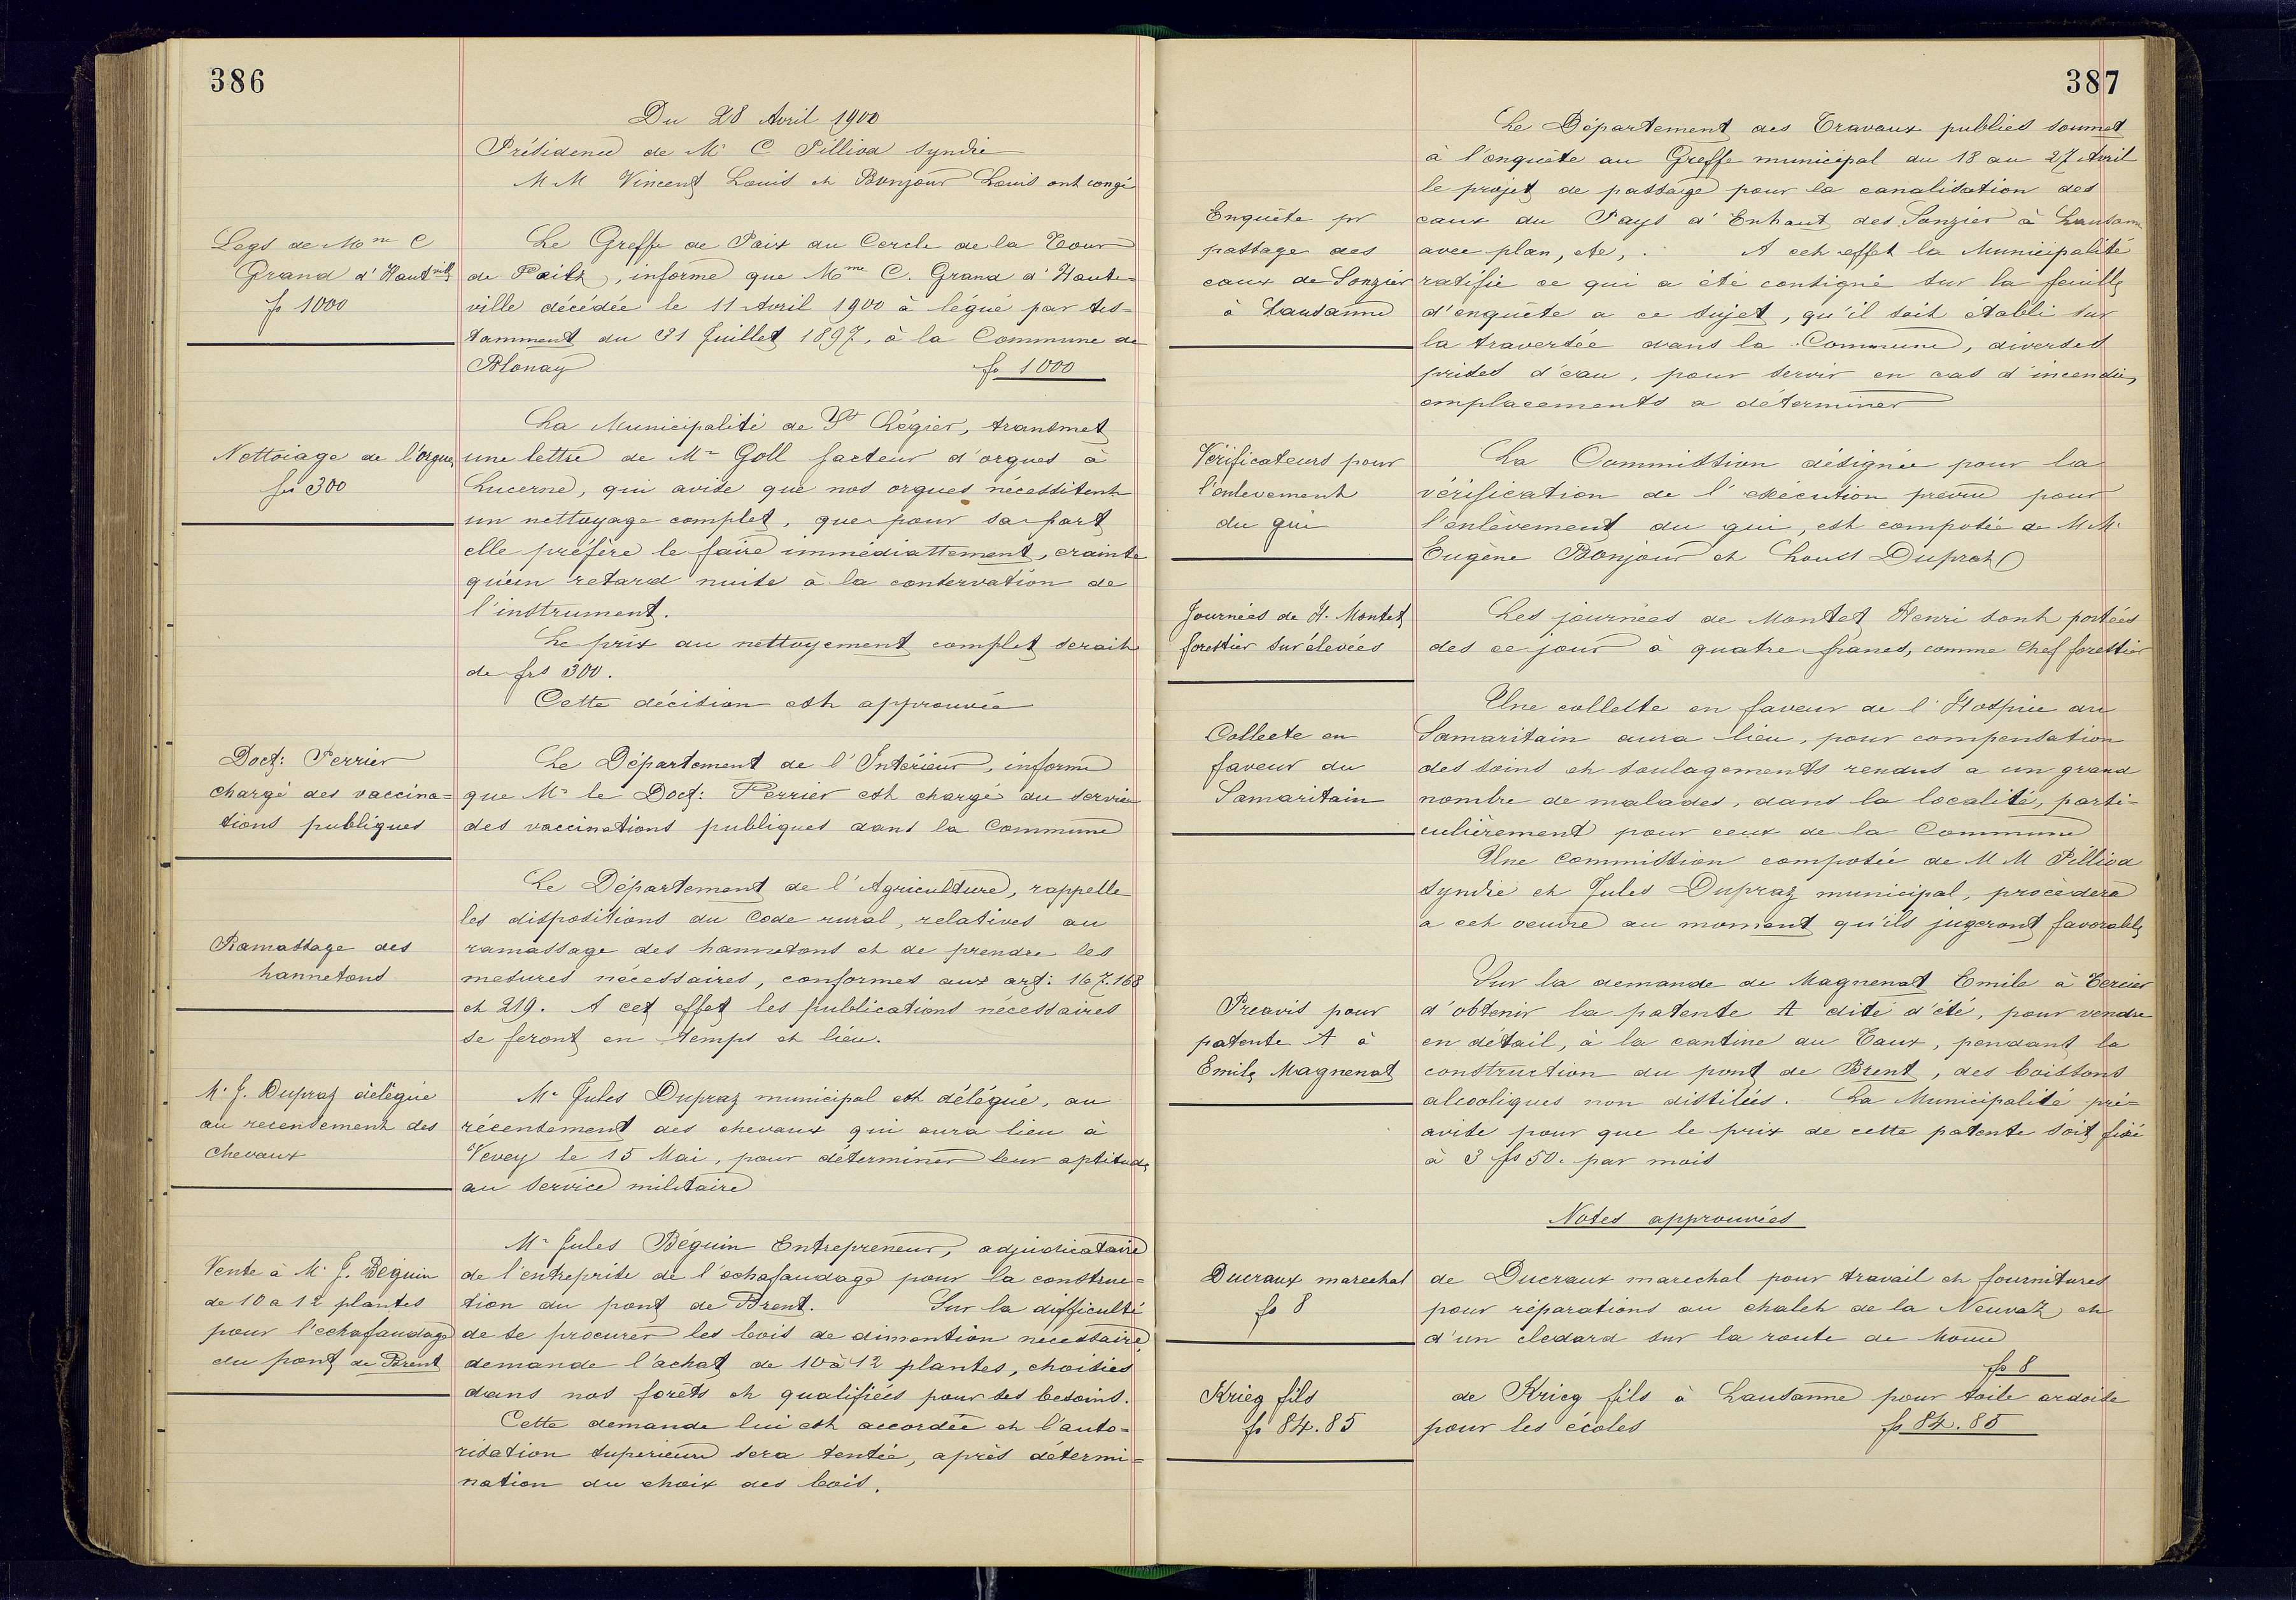 386
Du 28 Avril 1900
Présidence de Mr C Pilliod Syndic
M M Vincent Louis et Bonjour Louis ont congé
Legs de Mme C
Grand d'Hautville
fs 1000
Le Greffe de Paix du Cercle de la Tour
de Peilz, informe que Mme C. Grand d'Haute=
ville décédée le 11 Avril 1900 à légué par tes=
tamment du 31 Juillet 1897, à la Commune de
Blonay fs 1000
Nettoiage de l'orgue
frs 300
La Municipalité de St Légier, transmet
une lettre de Mr Goll facteur d'orgues à
Lucerne, qui avise que nos orgues nécessitent
un nettoyage complet, que pour sa part
elle préfère le faire immédiattement, crainte
qu'un retard nuise à la conservation de
l'instrument.
Le prix du nettoyement complet serait
de frs 300.
Cette décision est approuvée
Doct: Perrier
chargé des vaccina=
tions publiques
Le Département de l'Intérieur, informe
que Mr le Doct: Perrier est chargé du service
des vaccinations publiques dans la Commune
Ramassage des
hannetons
Le Département de l'Agriculture, rappelle
les dispositions du Code rural, relatives au
ramassage des hannetons et de prendre les
mesures nécessaires, conformes aux art: 167.168
et 219. A cet effet les publications nécessaires
se feront en temps et lieu.
Mr J. Dupraz délégué
au recensement des
chevaux
Mr Jules Dupraz municipal est délégué, au
récensement des chevaux qui aura lieu à
Vevey le 15 Mai, pour determiner leur aptitude
au service militaire
Vente à Mr J. Béguin
de 10 a 12 plantes
pour l'echafaudage
du pont de Brent
Mr Jules Béguin Entrepreneur, adjudicataire
de l'entreprise de l'echafaudage pour la construc=
tion du pont de Brent. Sur la difficulté
de se procurer les bois de dimention necessaire
demande l'achat de 10 à 12 plantes, choisies
dans nos forêts et qualifiées pour ses besoins.
Cette demande lui est accordée et l'auto=
risation superieure sera tentée, après détermi=
nation du choix des bois.
387
Enquête pr
passage des
eaux de Sonzier
à Lausanne
Le Département des Travaux publics soumet
à l'enquête au Greffe municipal du 18 au 27 Avril
le projet de passage pour la canalisation des
eaux du Pays d'Enhaut des Sonzier à Lausanne
avec plan, etc, . A cet effet la Municipalité
ratifie ce qui a été consigné sur la feuille
d'enquête a ce sujet, qu'il soit établi sur
la traversée dans la Commune, diverses
prises d'eau, pour servir en cas d'incendie,
emplacements a déterminer
Vérificateurs pour
l'enlevement
du gui
La Commission désignée pour la
vérification de l'exécution prévue pour
l'enlèvement du gui, est composée de M M.
Eugène Bonjour et Louis Dupraz
Journées de H. Montet
forestier surélevées
Les journées de Montet Henri sont portées
des ce jour à quatre francs, comme Chef forestier
Collecte en
faveur du
Samaritain
Une collecte en faveur de l'Hospice du
Samaritain aura lieu, pour compensation
des soins et soulagements rendus a un grand
nombre de malades, dans la localité, parti=
culièrement pour ceux de la Commune
Une Commission composée de M M Pilliod
syndic et Jules Dupraz municipal, procèdera
a cet oeuvre au moment qu'ils jugeront favorable
Preavis pour
patente A à
Emile Magnenat
Sur la demande de Magnenat Emile à Tercier
d'obtenir la patente A dite d'été, pour vendre
en détail, à la cantine au Taux, pendant la
construction du pont de Brent, des boissons
alcooliques non distilées. La Municipalité pré=
avise pour que le prix de cette patente soit fixé
à 3 frs 50. par mois
Notes approuvées
Ducraux marechal
fs 8
de Ducraux marechal pour travail et fournitures
pour réparations au chalet de la Neuvaz et
d'un cledard sur la route de
fs 8
Krieg fils
fs 84.85
de Krieg fils à Lausanne pour toile ardoise
pour les écoles fs 84.85